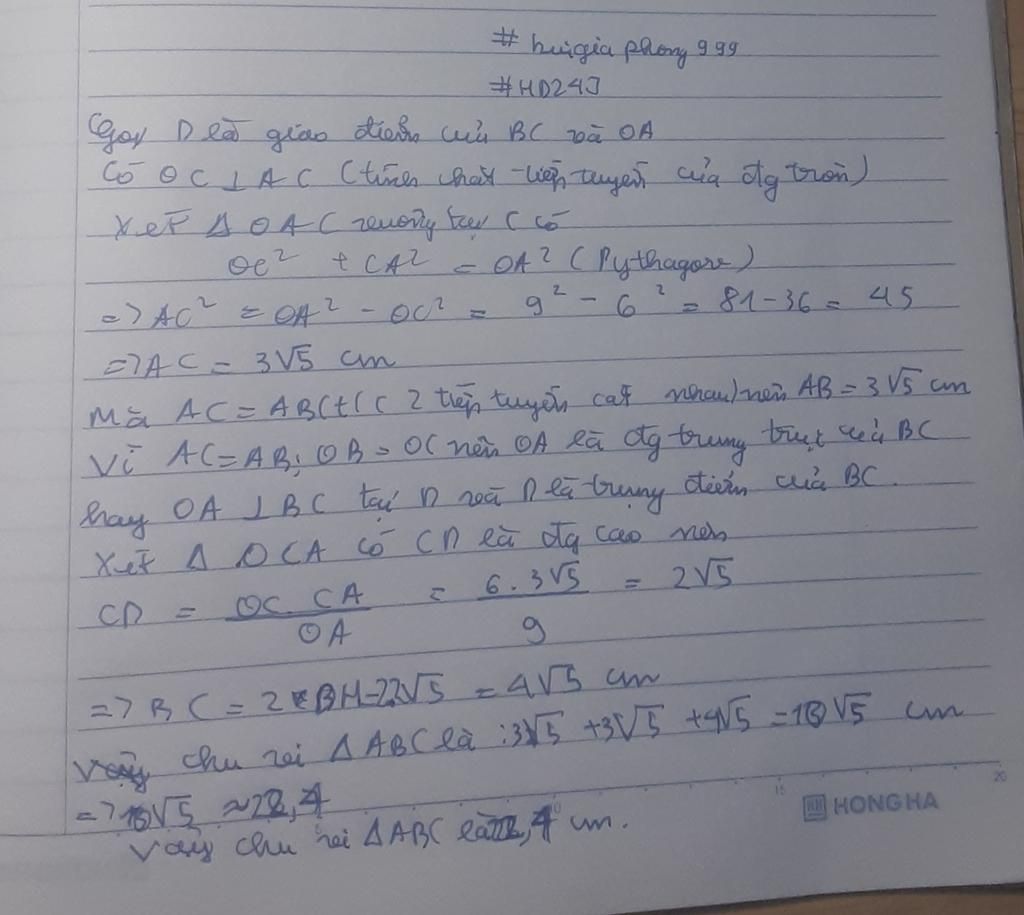 # buigia phong 999
#HD247
Gọi D là giao điểm của BC và OA
Có OC ⊥ AC (tính chất tiếp tuyến của đg tròn)
Xét Δ OAC vuông tại C có
OC² + CA² = OA² (Pythagore)
=> AC² = OA² - OC² = 9² - 6² = 81 - 36 = 45
=> AC = 3√5 cm
Mà AC = AB (t/c 2 tiếp tuyến cắt nhau) nên AB = 3√5 cm
Vì AC = AB; OB = OC nên OA là đg trung trực của BC
hay OA ⊥ BC tại D và D là trung điểm của BC.
Xét Δ OCA có CD là đg cao nên
CD = OC.CA / OA = 6.3√5 / 9 = 2√5
=> BC = 2 BH = 2.2√5 = 4√5 cm
Vậy chu vi ΔABC là : 3√5 + 3√5 + 4√5 = 10√5 cm
=> 10√5 ≈ 22,4
Vậy chu vi ΔABC là 22,4 cm.
15
20
HONG HA